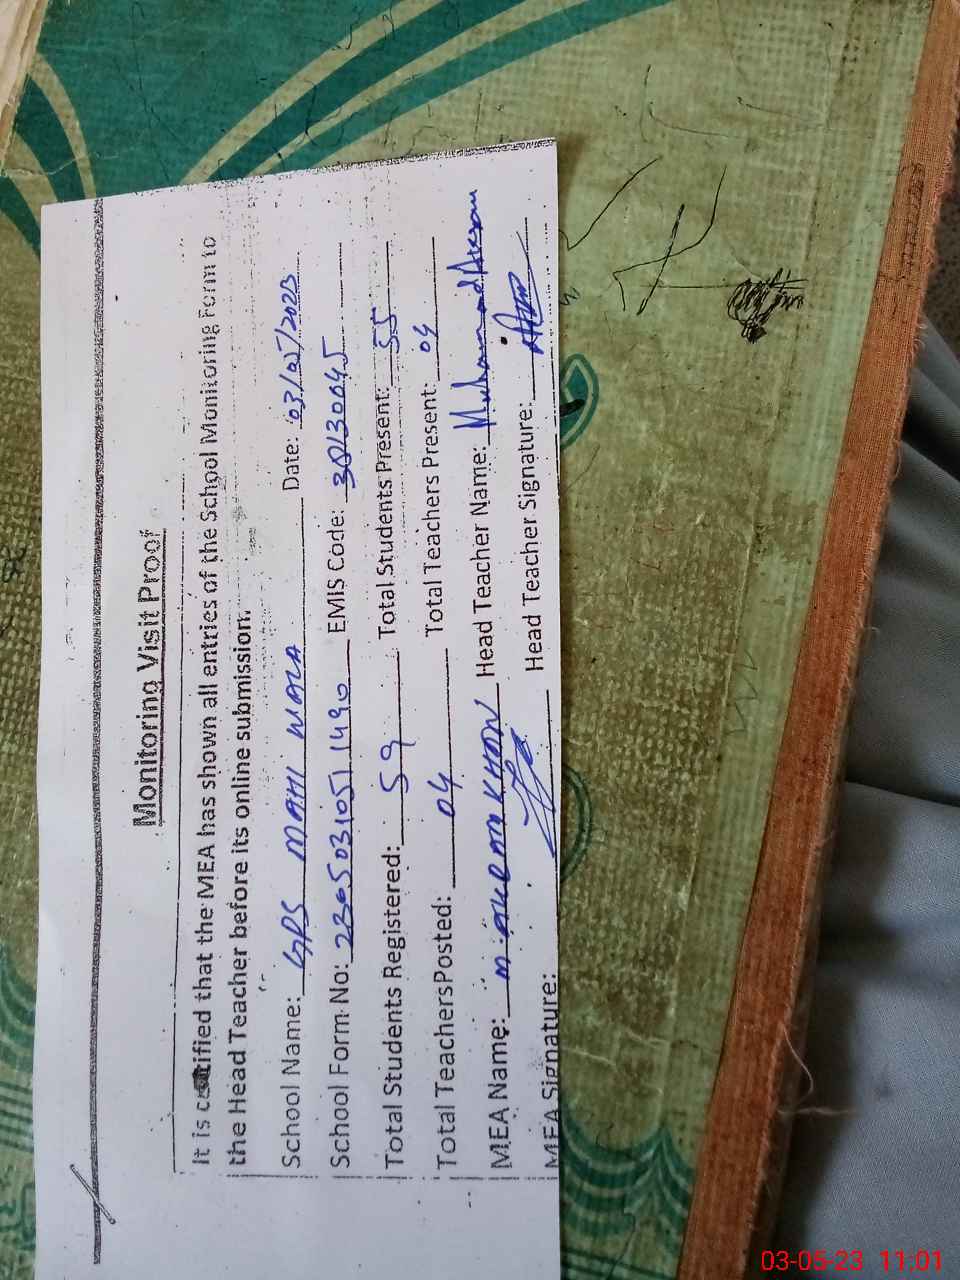 Monitoring Visit Proof
It is certified that the MEA has shown all entries of the School Monitoring Form to
the Head Teacher before its online submission.
School Name: GPS MAHI WALA Date: 03/05/2023
School Form No: EMIS Code:
Total Students Registered: 59 Total Students Present: 55
Total Teachers Posted: 04 Total Teachers Present: 04
MEA Name: KHAN Head Teacher Name: Muhammad Akram
MEA Signature: Head Teacher Signature:
03-05-23 11:01